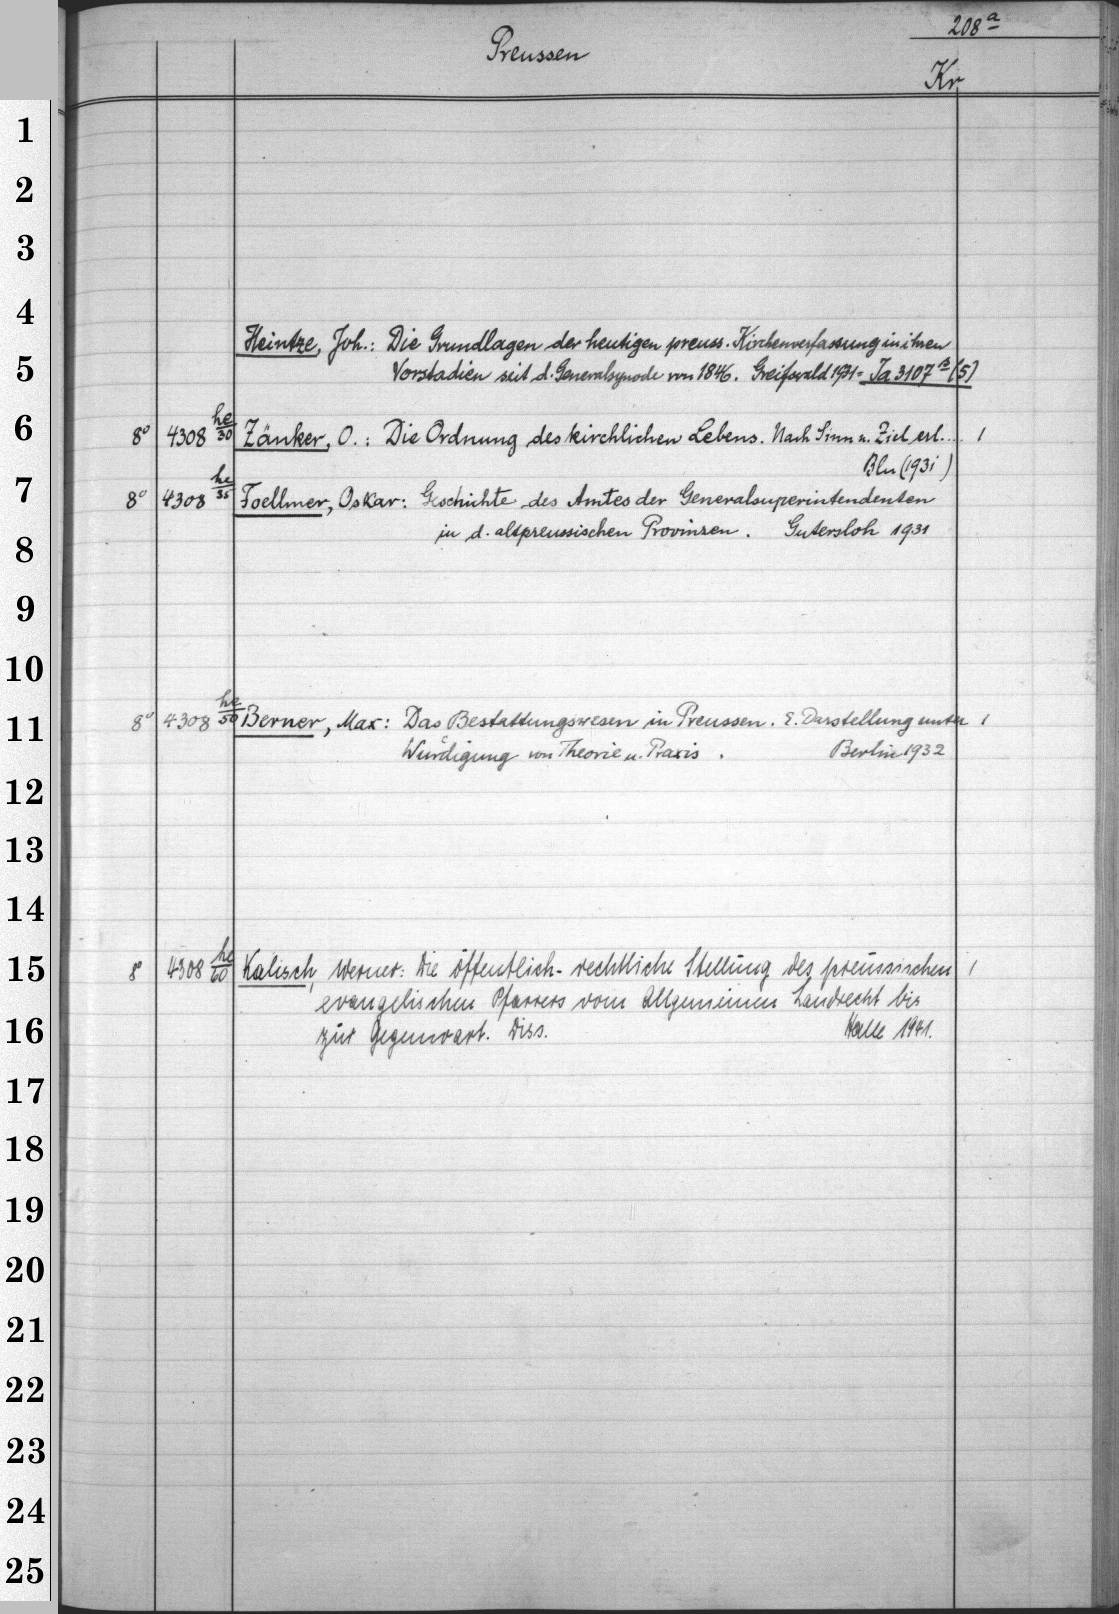 208 a
Preussen
Kr
1
2
3
4
Heintze, Joh.: Die Grundlagen der heutigen preuss. Kirchenverfassung in ihren
5
Vorstadien seit d. Generalsynode von 1846. Greifswald 1931 = Ja 3107 (5)
6
8° 4308 he/30 Zänker, O.: Die Ordnung des kirchlichen Lebens. Nach Sinn u. Ziel erl... 1
Bln (1931)
7
8° 4308 he/35 Foellmer, Oskar: Geschichte des Amtes der Generalsuperintendenten
8
in d. altpreussischen Provinzen. Gütersloh 1931
9
10
11
8° 4308 he/50 Berner, Max: Das Bestattungswesen in Preussen. E. Darstellung unter 1
Würdigung von Theorie u. Praxis. Berlin 1932
12
13
14
15
8° 4308 he/60 Kalisch, Werner: Die öffentlich-rechtliche Stellung des preussischen 1
evangelischen Pfarrers vom Allgemeinen Landrecht bis
16
zur Gegenwart. Diss. Halle 1941.
17
18
19
20
21
22
23
24
25